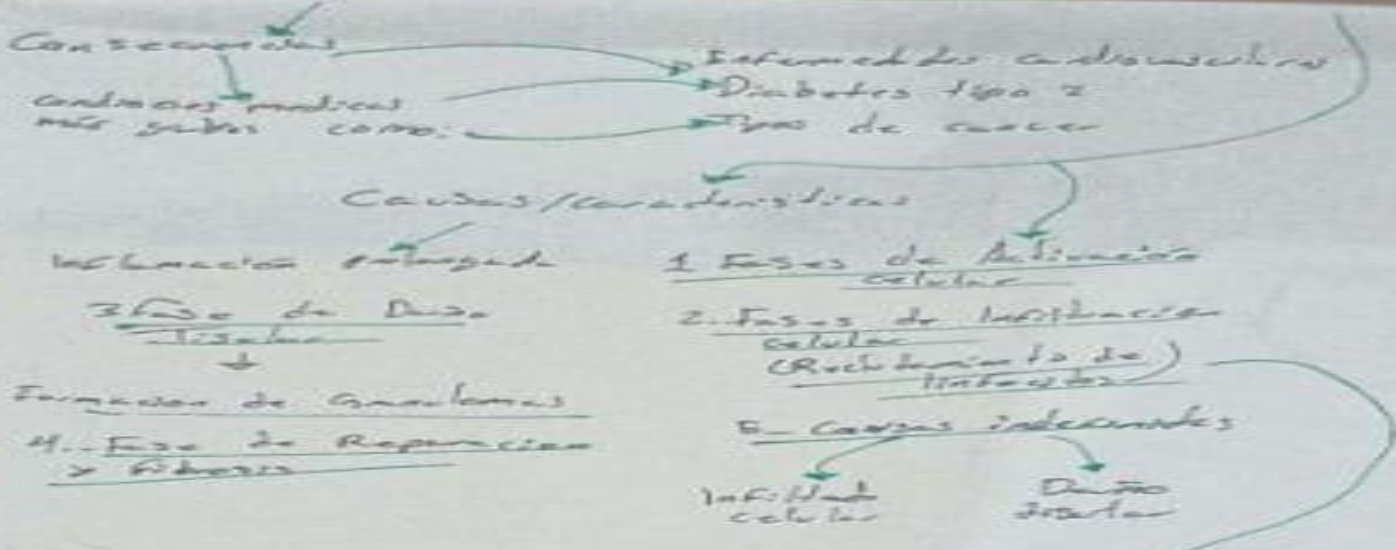 Consecuencias
condiciones medicas
más graves como:
Enfermedades cardiovasculares
Diabetes tipo 2
Tipos de cancer
Causas/características
Inflamación prolongada
3 Fase de Daño
Tisular
Formación de Granulomas
4.. Fase de Reparación
y Fibrosis
1 Fases de Activación
celular
2.. Fases de Infiltración
celular
(Reclutamiento de
linfocitos)
5_ Causas
Infiltrado
celular
Daño
tisular